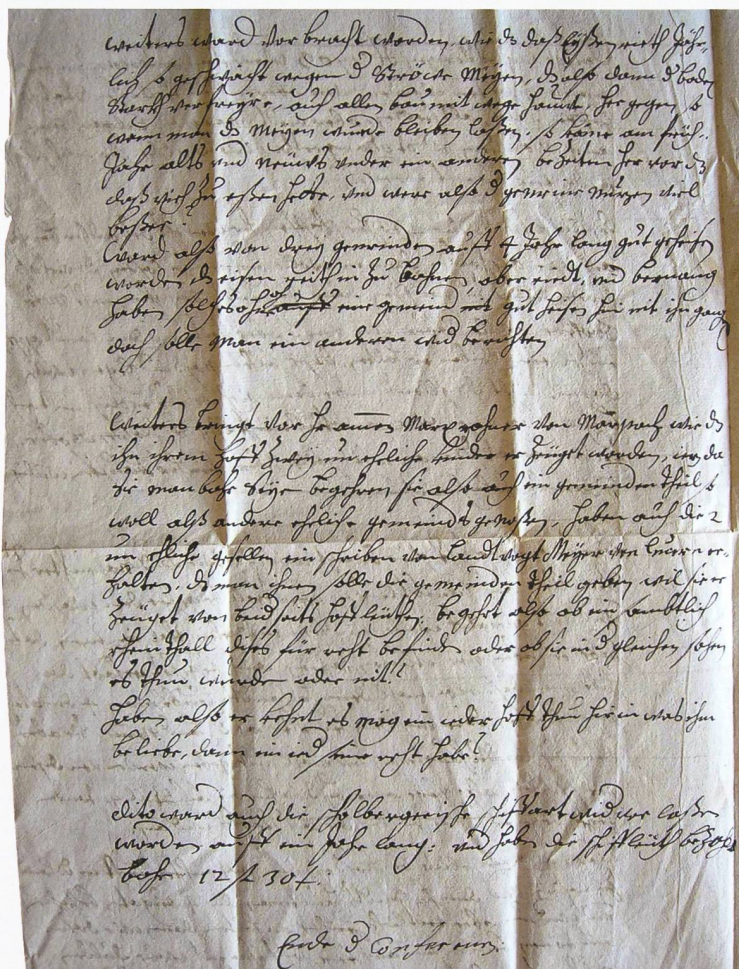 weiters ward vor bracht worden, wie ds daß Eyßen rieth Jähr-
lich so geschwächt wegen d Ströwe Meyen, ds also dann d boden
starkh, auch allen baumit wege, her gegen, so
wann man ds Meyen wurde bleiben laßen, so käme am früh-
Jahr alts und neüws under ein anderen beZeiten her vor ds
daß vich Zu eßen hette, und were also d gemeine nuzen viel
beßer.
Ward also von dreÿ gemeinden auff 4 Jahr lang gut geheißen
worden ds eisen rieth in Zu, ober riedt, und bernang
haben solches ohne eine gemeind nit gut heisen hin mit ihn gang
doch solle man ein anderen wid berichten
Weiters bringt vor hr amen Marx rohner von Marpach wie ds
ihn ihrem hoff Zweÿ un eheliche kinder er Zeüget worden, da
Sie manbahr Sÿe begehren sie also auch ein gemeinden theil so
woll alß andere ehliche gemeindsgenoßen, haben auch die 2
un ehliche gesellen ein schreiben von Landtvogt Meÿer von Lucern er-
halten, ds man ihnen solle die gemeinden theil geben weil sie er
Zeüget von beidseits hofflüthen, begehrt also ob ein ambtlich
rhein thall dises für recht befinde oder ob sie in d gleichen sachen
es thun wurde oder nit?
haben also er kehnt es mög ein ieder hoff thun hirin was ihm
beliebe, dann ein ied seine recht habe.
dito ward auch die schiffart wid ver laßen
worden auff ein Jahr lang: und haben die schifflüth bezahlt
bahr 12 fl 30 f.
Ende d Conferenz.